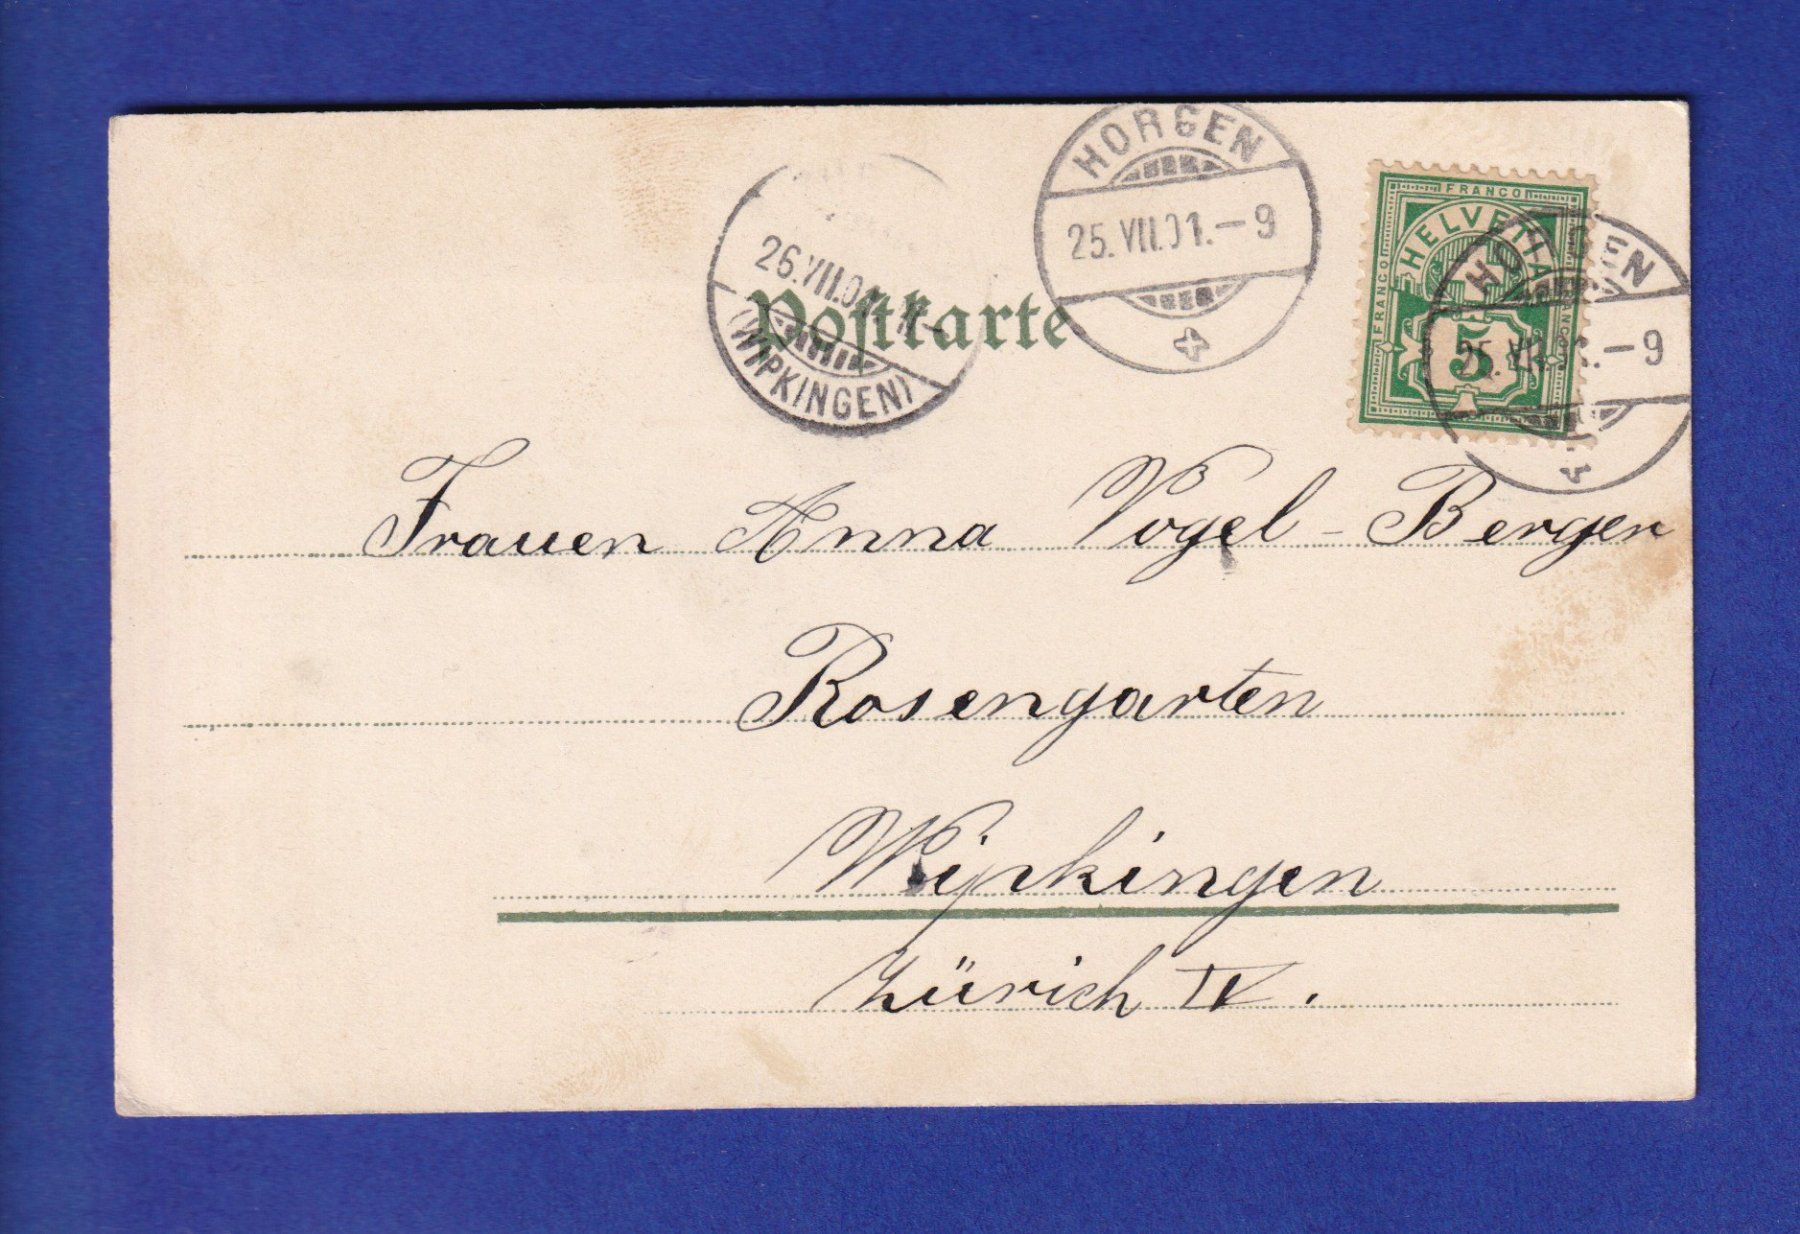 HORGEN
25.VII.01.–9
FRANCO
HELVETIA
FRANCO
FRANCO
5
HORGEN
25.VII.01.–9
26.VII.01.
(WIPKINGEN)
Postkarte
Frauen Anna Vogel - Berger
Rosengarten
Wipkingen
Zürich IV.